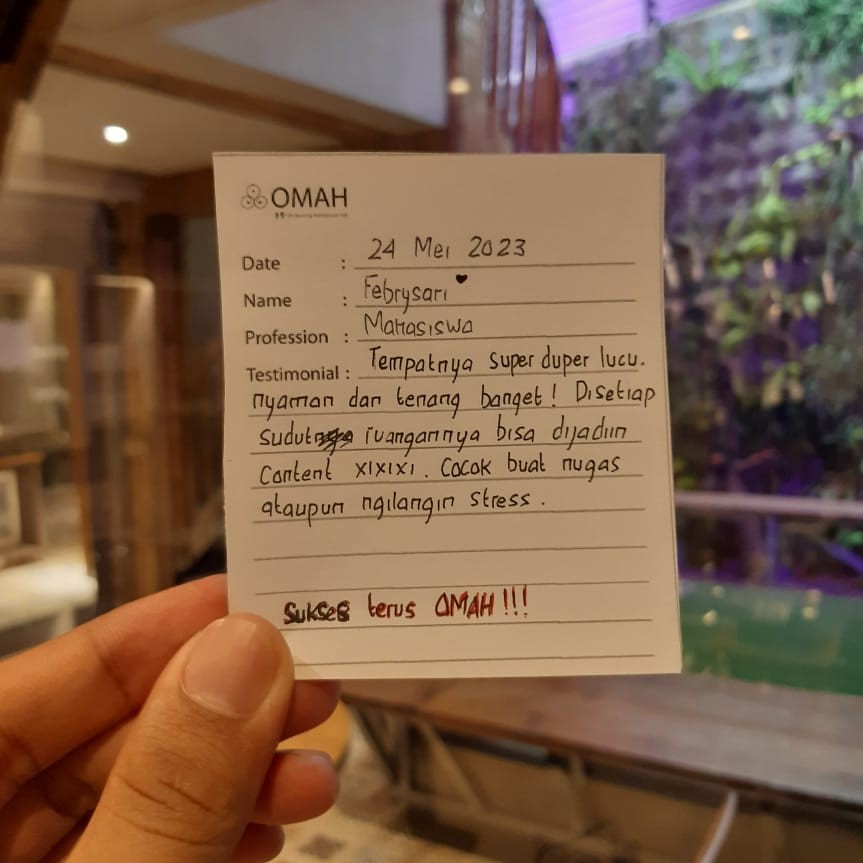 OMAH
Date : 24 Mei 2023
Name : Febrysari
Profession : Mahasiswa
Testimonial : Tempatnya super duper lucu.
nyaman dan tenang banget! Disetiap
sudut ruangannya bisa dijadiin
Content xixixi. Cocok buat nugas
ataupun ngilangin stress.
Sukses terus OMAH!!!